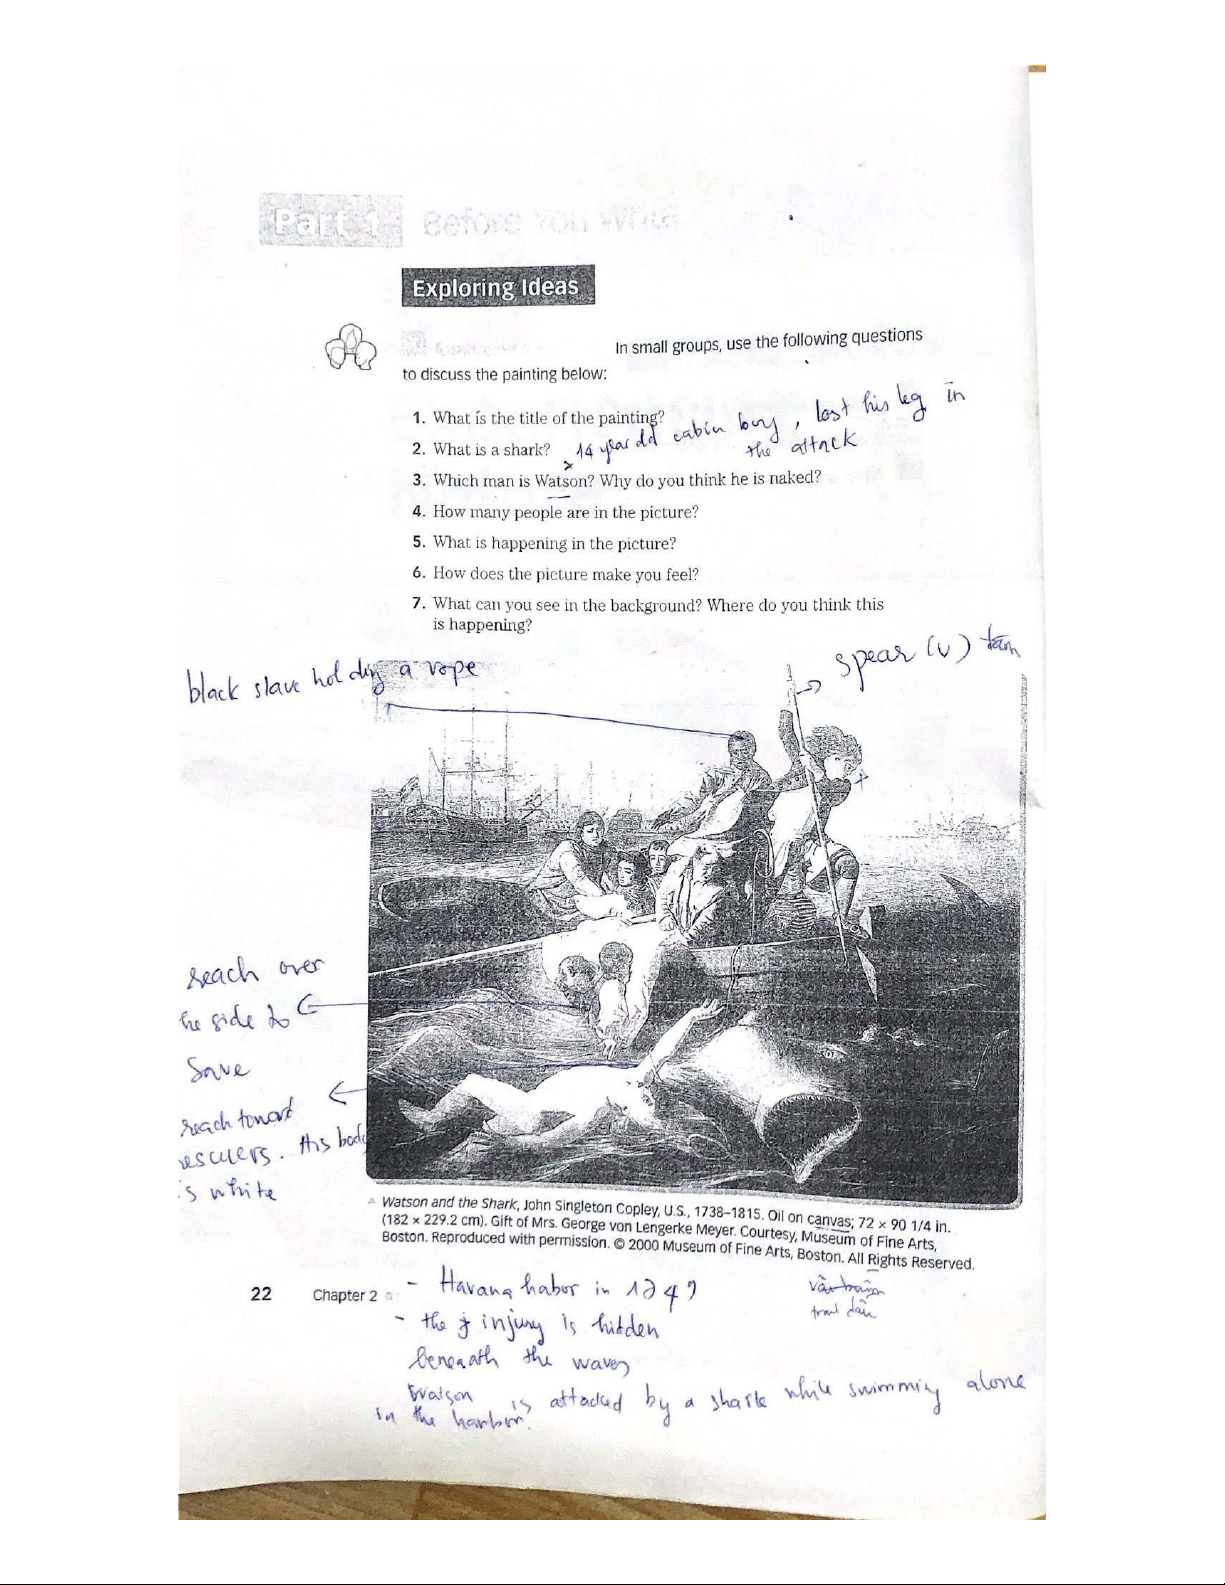 Part 1 Before You Write
Exploring Ideas
In small groups, use the following questions
to discuss the painting below:
1. What is the title of the painting?
2. What is a shark?
14 year old cabin boy, lost his leg in
the attack
3. Which man is Watson? Why do you think he is naked?
4. How many people are in the picture?
5. What is happening in the picture?
6. How does the picture make you feel?
7. What can you see in the background? Where do you think this
is happening?
spear (v)
black slave holding a rope
reach over
he side to
save
reach toward
rescuers. His body
is white
Watson and the Shark, John Singleton Copley, U.S., 1738–1815. Oil on canvas; 72 × 90 1/4 in.
(182 × 229.2 cm). Gift of Mrs. George von Lengerke Meyer. Courtesy, Museum of Fine Arts,
Boston. Reproduced with permission. © 2000 Museum of Fine Arts, Boston. All Rights Reserved.
22 Chapter 2
- Havana habor in 1749
- the injury is hidden
beneath the waves
Watson is attacked by a shark while swimming alone
in the harbor.